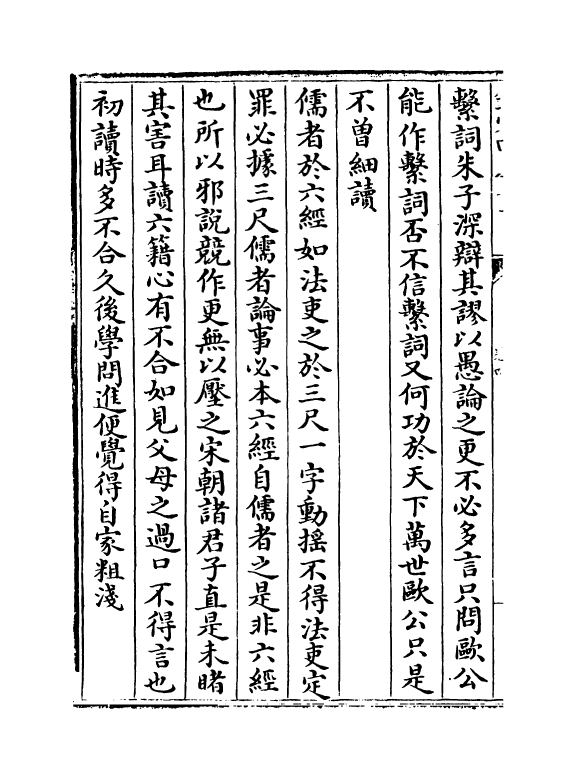 繫詞朱子深辯其謬以愚論之更不必多言只問歐公
能作繫詞否不信繫詞又何功於天下萬世歐公只是
不曽細讀
儒者於六經如法吏之於三尺一字動搖不得法吏定
罪必據三尺儒者論事必本六經自儒者之是非六經
也所以邪說競作更無以壓之宋朝諸君子直是未睹
其害耳讀六籍心有不合如見父母之過口不得言也
初讀時多不合久後學問進便覺得自家粗淺